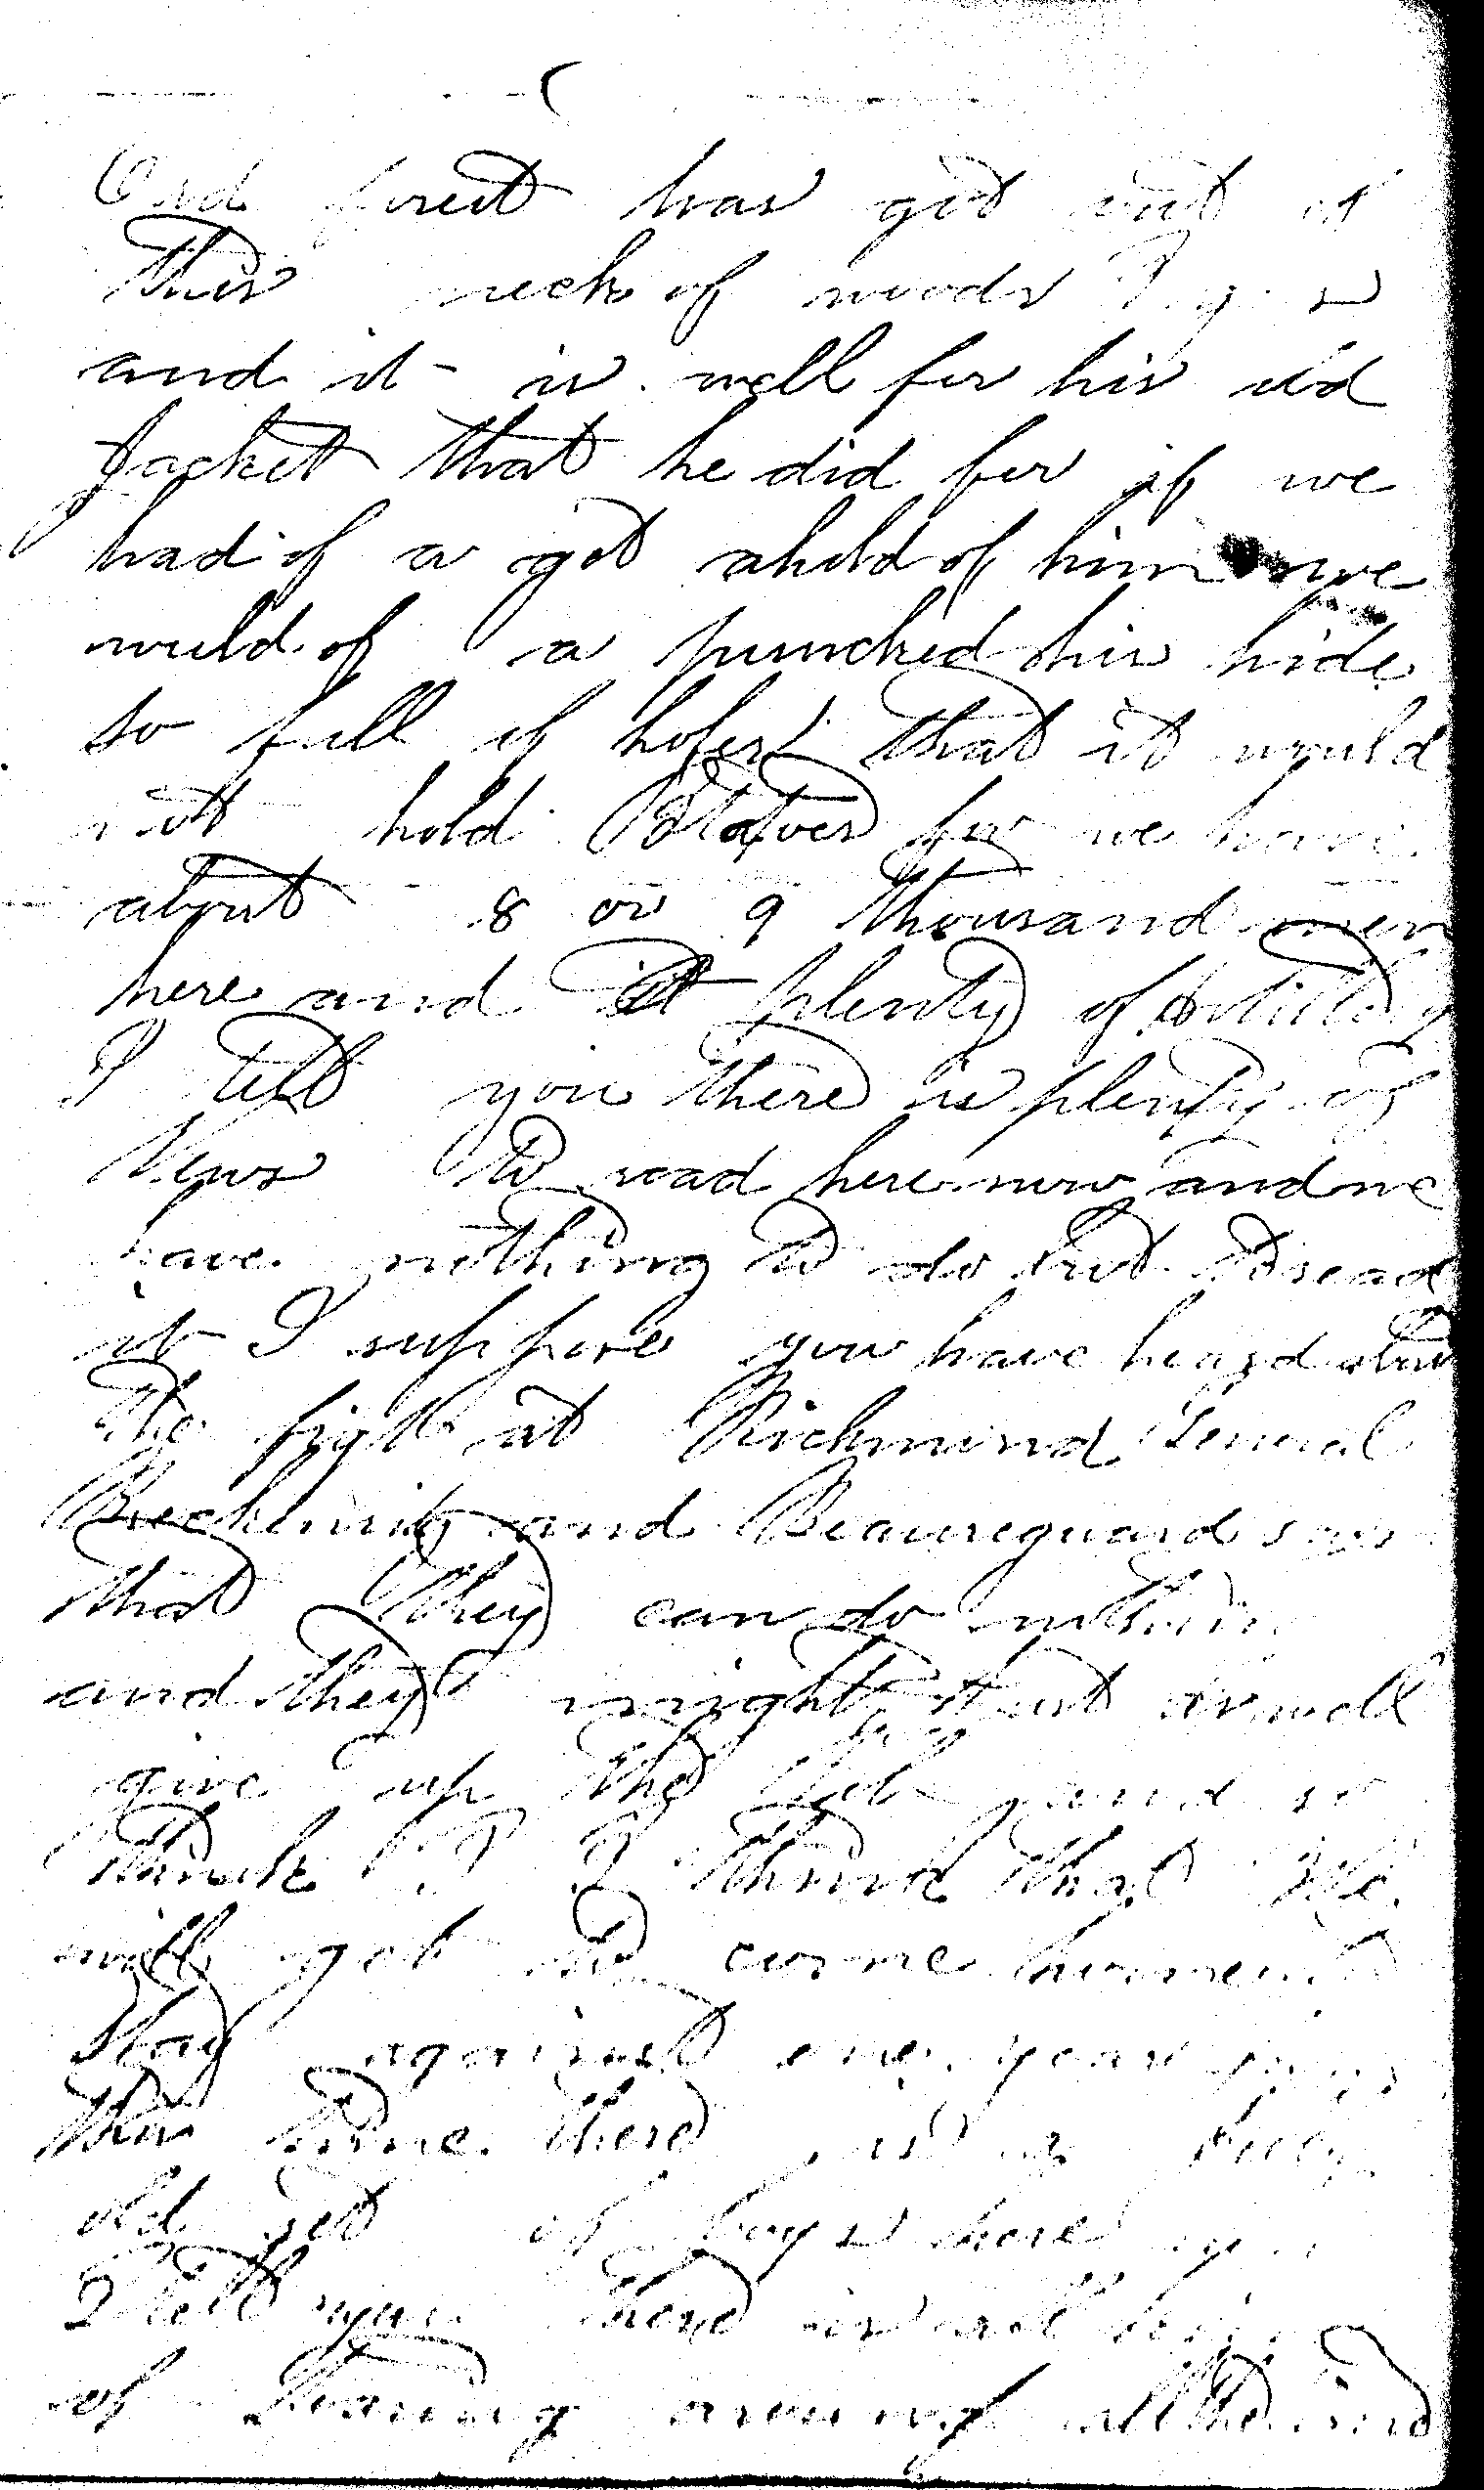 Old forest has got out of
this neck of woods I guess
and it is well for his old
Jacket that he did for if we
had of a got ahold of him we
would of a punched his hide
so full of holes that it would
not hold Potatoes for we have
about 8 or 9 thousand men
here and plenty of Artillery
I tell you there is plenty of
News to read here now and we
have nothing to do but to read
it I suppose you have heard about
the fight at Richmond General
and Beaureguard says
that they can do nothin
and they might just as well
give up the and so
think I I think that We
will get to come home to
Stay against one year from
this time there is a bully
old set of boys here
I tell you there is all
of around all the time